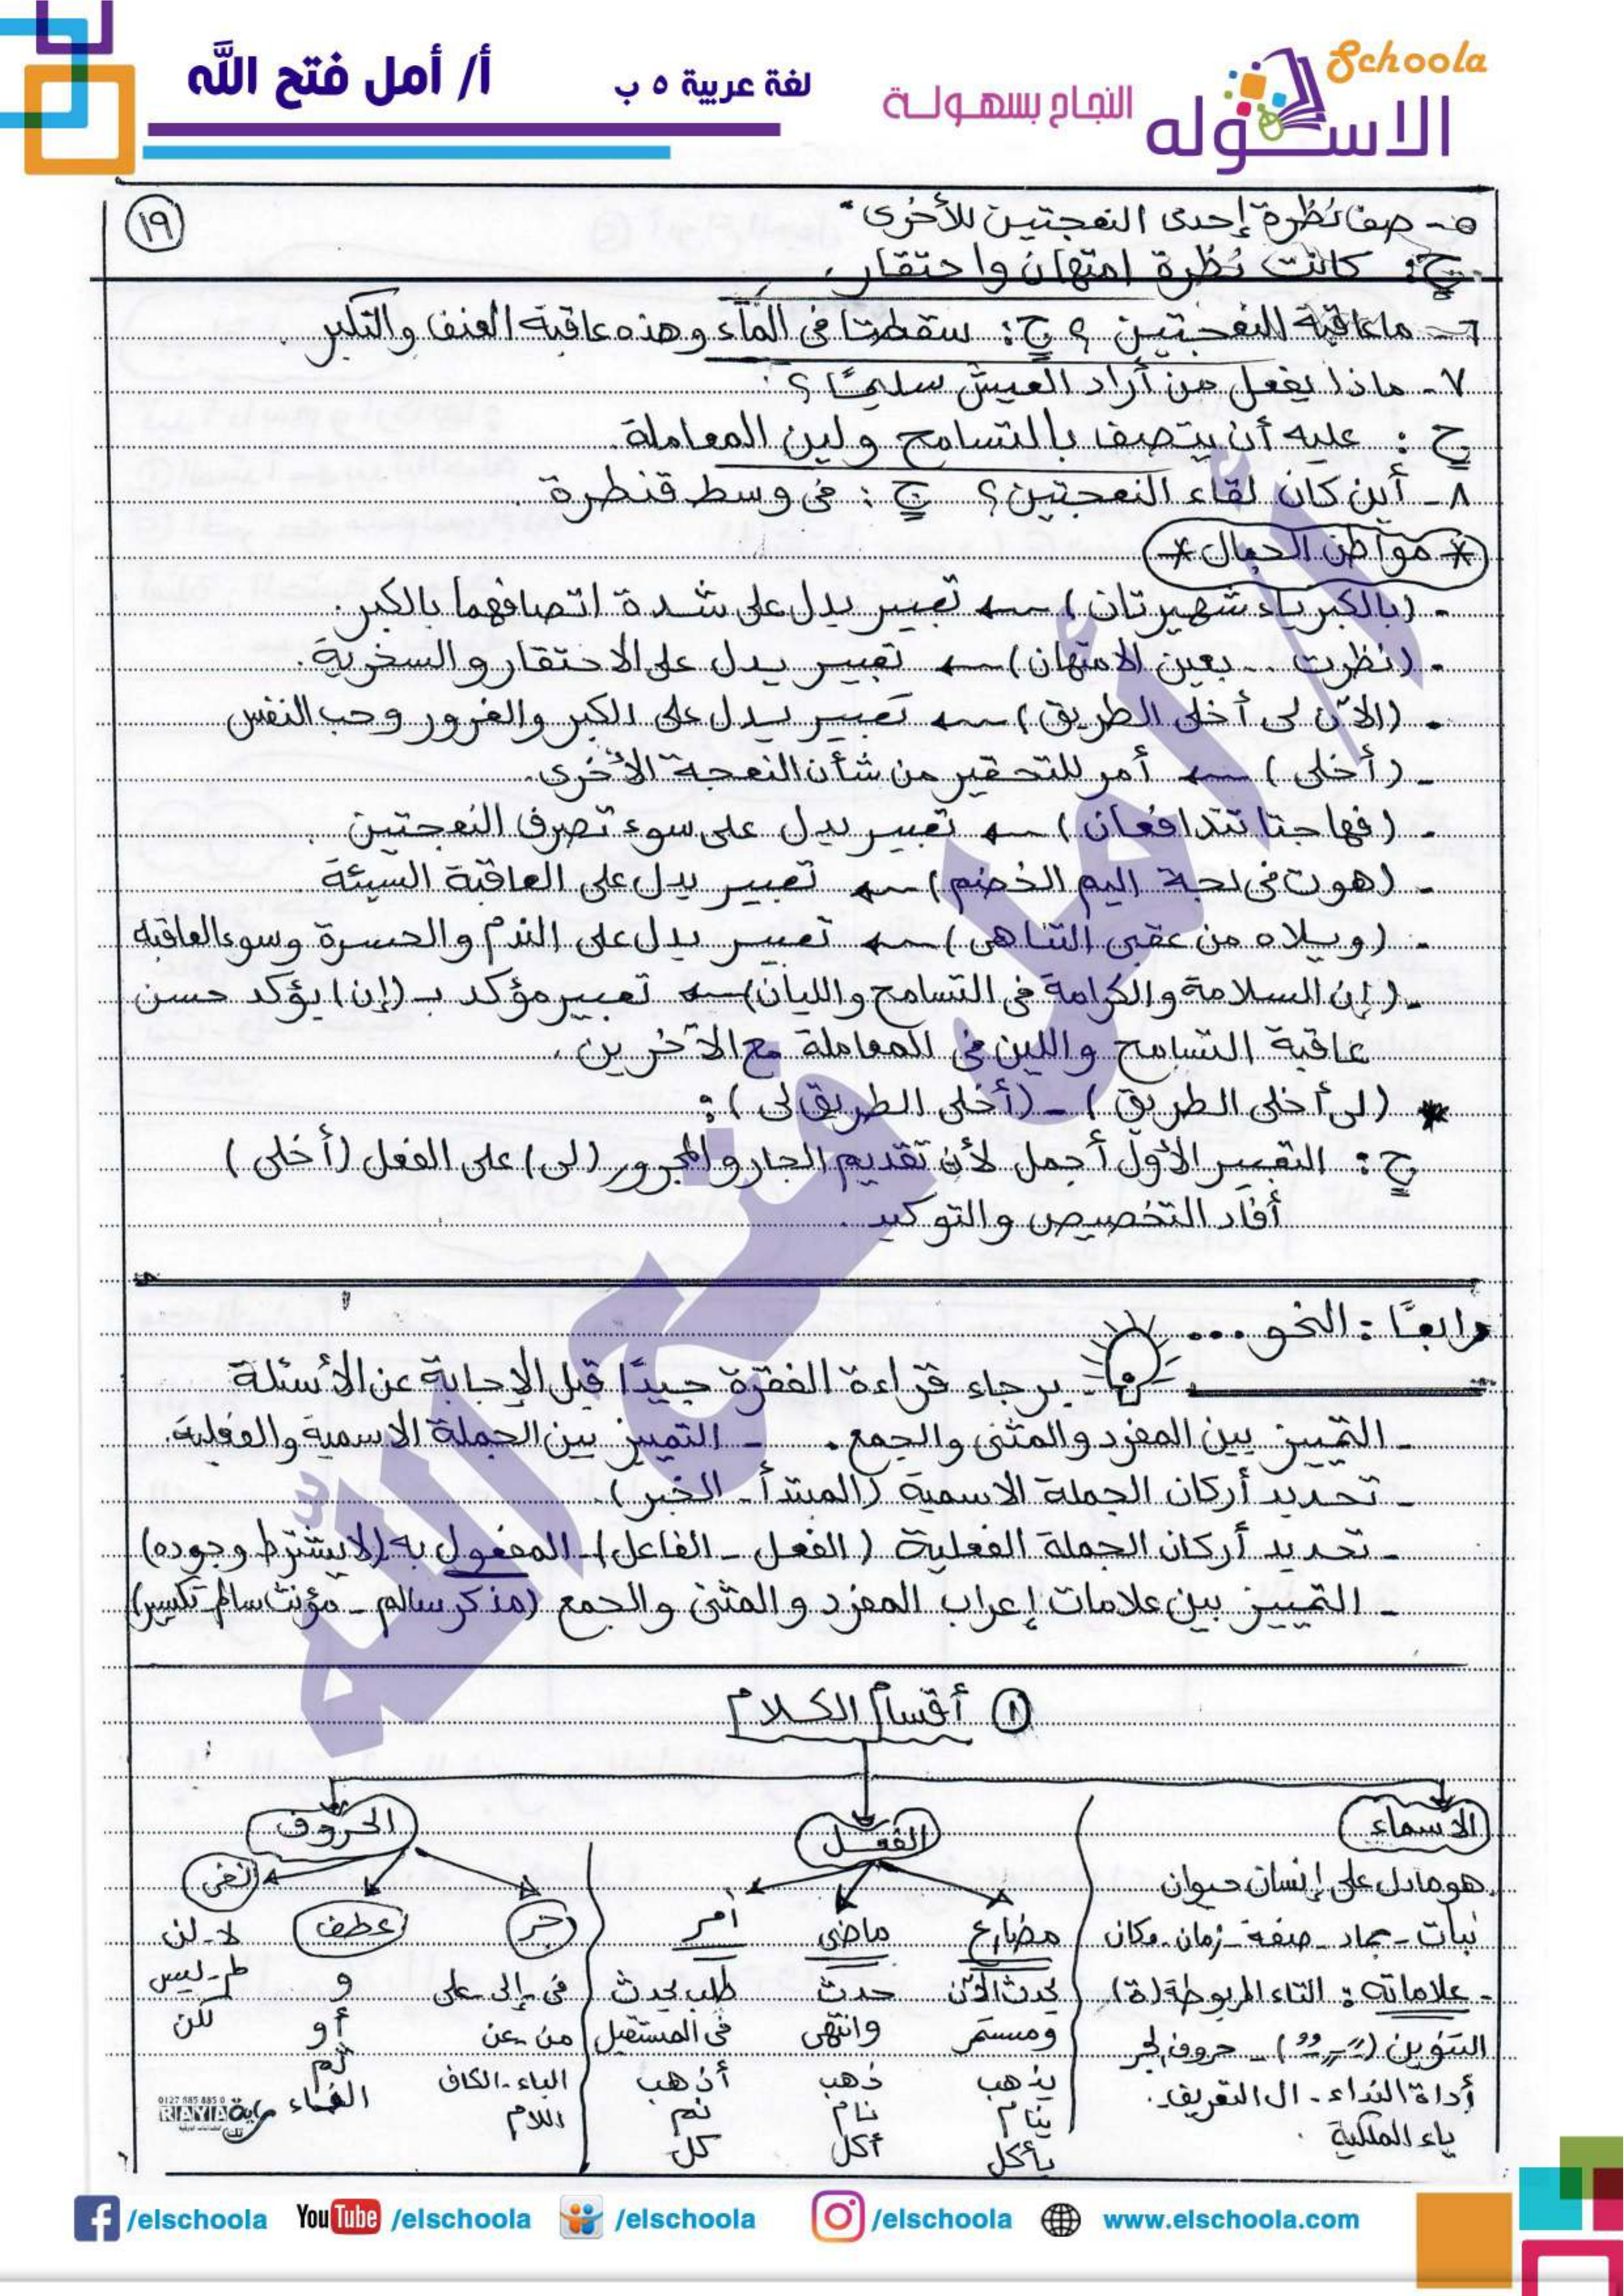 Schoola
الاسكوله
النجاح بسهولة
لغة عربية ٥ ب
أ/ أمل فتح الله
١٩
٥- صف نظرة إحدى النعجتين للأخرى.
ج: كانت نظرة امتهان واحتقار.
٦- ما عاقبة النعجتين؟ ج: سقطتا فى الماء وهذه عاقبة العنف والتكبر.
٧- ماذا يفعل من أراد العيش سليمًا؟
ج: عليه أن يتصف بالتسامح ولين المعاملة.
٨- أين كان لقاء النعجتين؟ ج: فى وسط قنطرة.
* مواطن الجمال *
- (بالكبرياء شهيرتان) ← تعبير يدل على شدة اتصافهما بالكبر.
- (نظرت .. بعين الامتهان) ← تعبير يدل على الاحتقار والسخرية.
- (الآن لى أخلى الطريق) ← تعبير يدل على الكبر والغرور وحب النفس
- (أخلى) ← أمر للتحقير من شأن النعجة الأخرى.
- (فهاجتا تتدافعان) ← تعبير يدل على سوء تصرف النعجتين.
- (هوت فى لجة اليم الخضم) ← تعبير يدل على العاقبة السيئة
- (ويلاه من عقبى التناهى) ← تعبير يدل على الندم والحسرة وسوء العاقبه
- (إن السلامة والكرامة فى التسامح والليان) ← تعبير مؤكد بـ (إن) يؤكد حسن
عاقبة التسامح واللين فى المعاملة مع الآخرين.
* (لى أخلى الطريق) - (أخلى الطريق لى):
ج: التعبير الأول أجمل لأن تقديم الجار والمجرور (لى) على الفعل (أخلى)
أفاد التخصيص والتوكيد.
رابعًا: النحو ...
- برجاء قراءة الفقرة جيدًا قبل الإجابة عن الأسئلة
- التمييز بين المفرد والمثنى والجمع. - التمييز بين الجملة الاسمية والفعلية.
- تحديد أركان الجملة الاسمية (المبتدأ - الخبر).
- تحديد أركان الجملة الفعلية (الفعل - الفاعل) - المفعول به (لا يشترط وجوده)
- التمييز بين علامات إعراب المفرد والمثنى والجمع (مذكر سالم - مؤنث سالم تكسير)
١ أقسام الكلام
الأسماء الفعل الحروف
هو ما دل على إنسان حيوان
نبات - جماد - صفة - زمان - مكان
- علاماته: التاء المربوطة (ة)
التنوين (ـًـ ـٍـ ـٌـ) - حروف الجر
أداة النداء - ال التعريف.
ياء الملكية.
مضارع ماضى أمر
يحدث الآن حدث طلب يحدث
ومستمر وانتهى فى المستقبل
يذهب ذهب أذهب
ينام نام نم
يأكل أكل كل
جر عطف نفى
فى - إلى - على و لا - لن
من - عن أو لم - ليس
الباء - الكاف ثم لكن
اللام الفاء
0127 585 885 0
RAYA راية
/elschoola YouTube /elschoola /elschoola /elschoola www.elschoola.com
أ/ أمل فتح الله